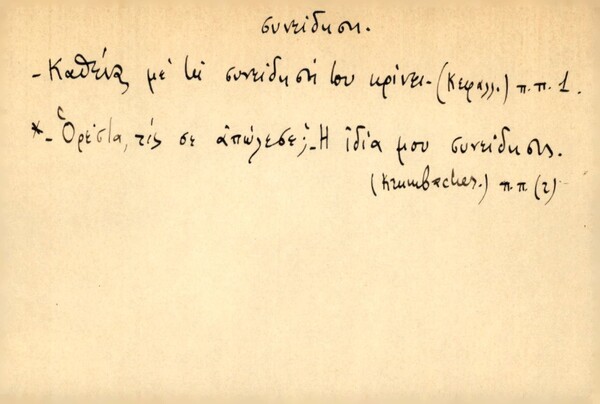 συνείδηση.
-Καθένας μὲ τὴ συνείδησή του κρίνει-(Κεφαλλ.) π.π. 1.
*-Ὀρέστα, τίς σε ἀπώλεσε;-Ἡ ἰδία μου συνείδησις.
(Krumbacher.) π.π (2)